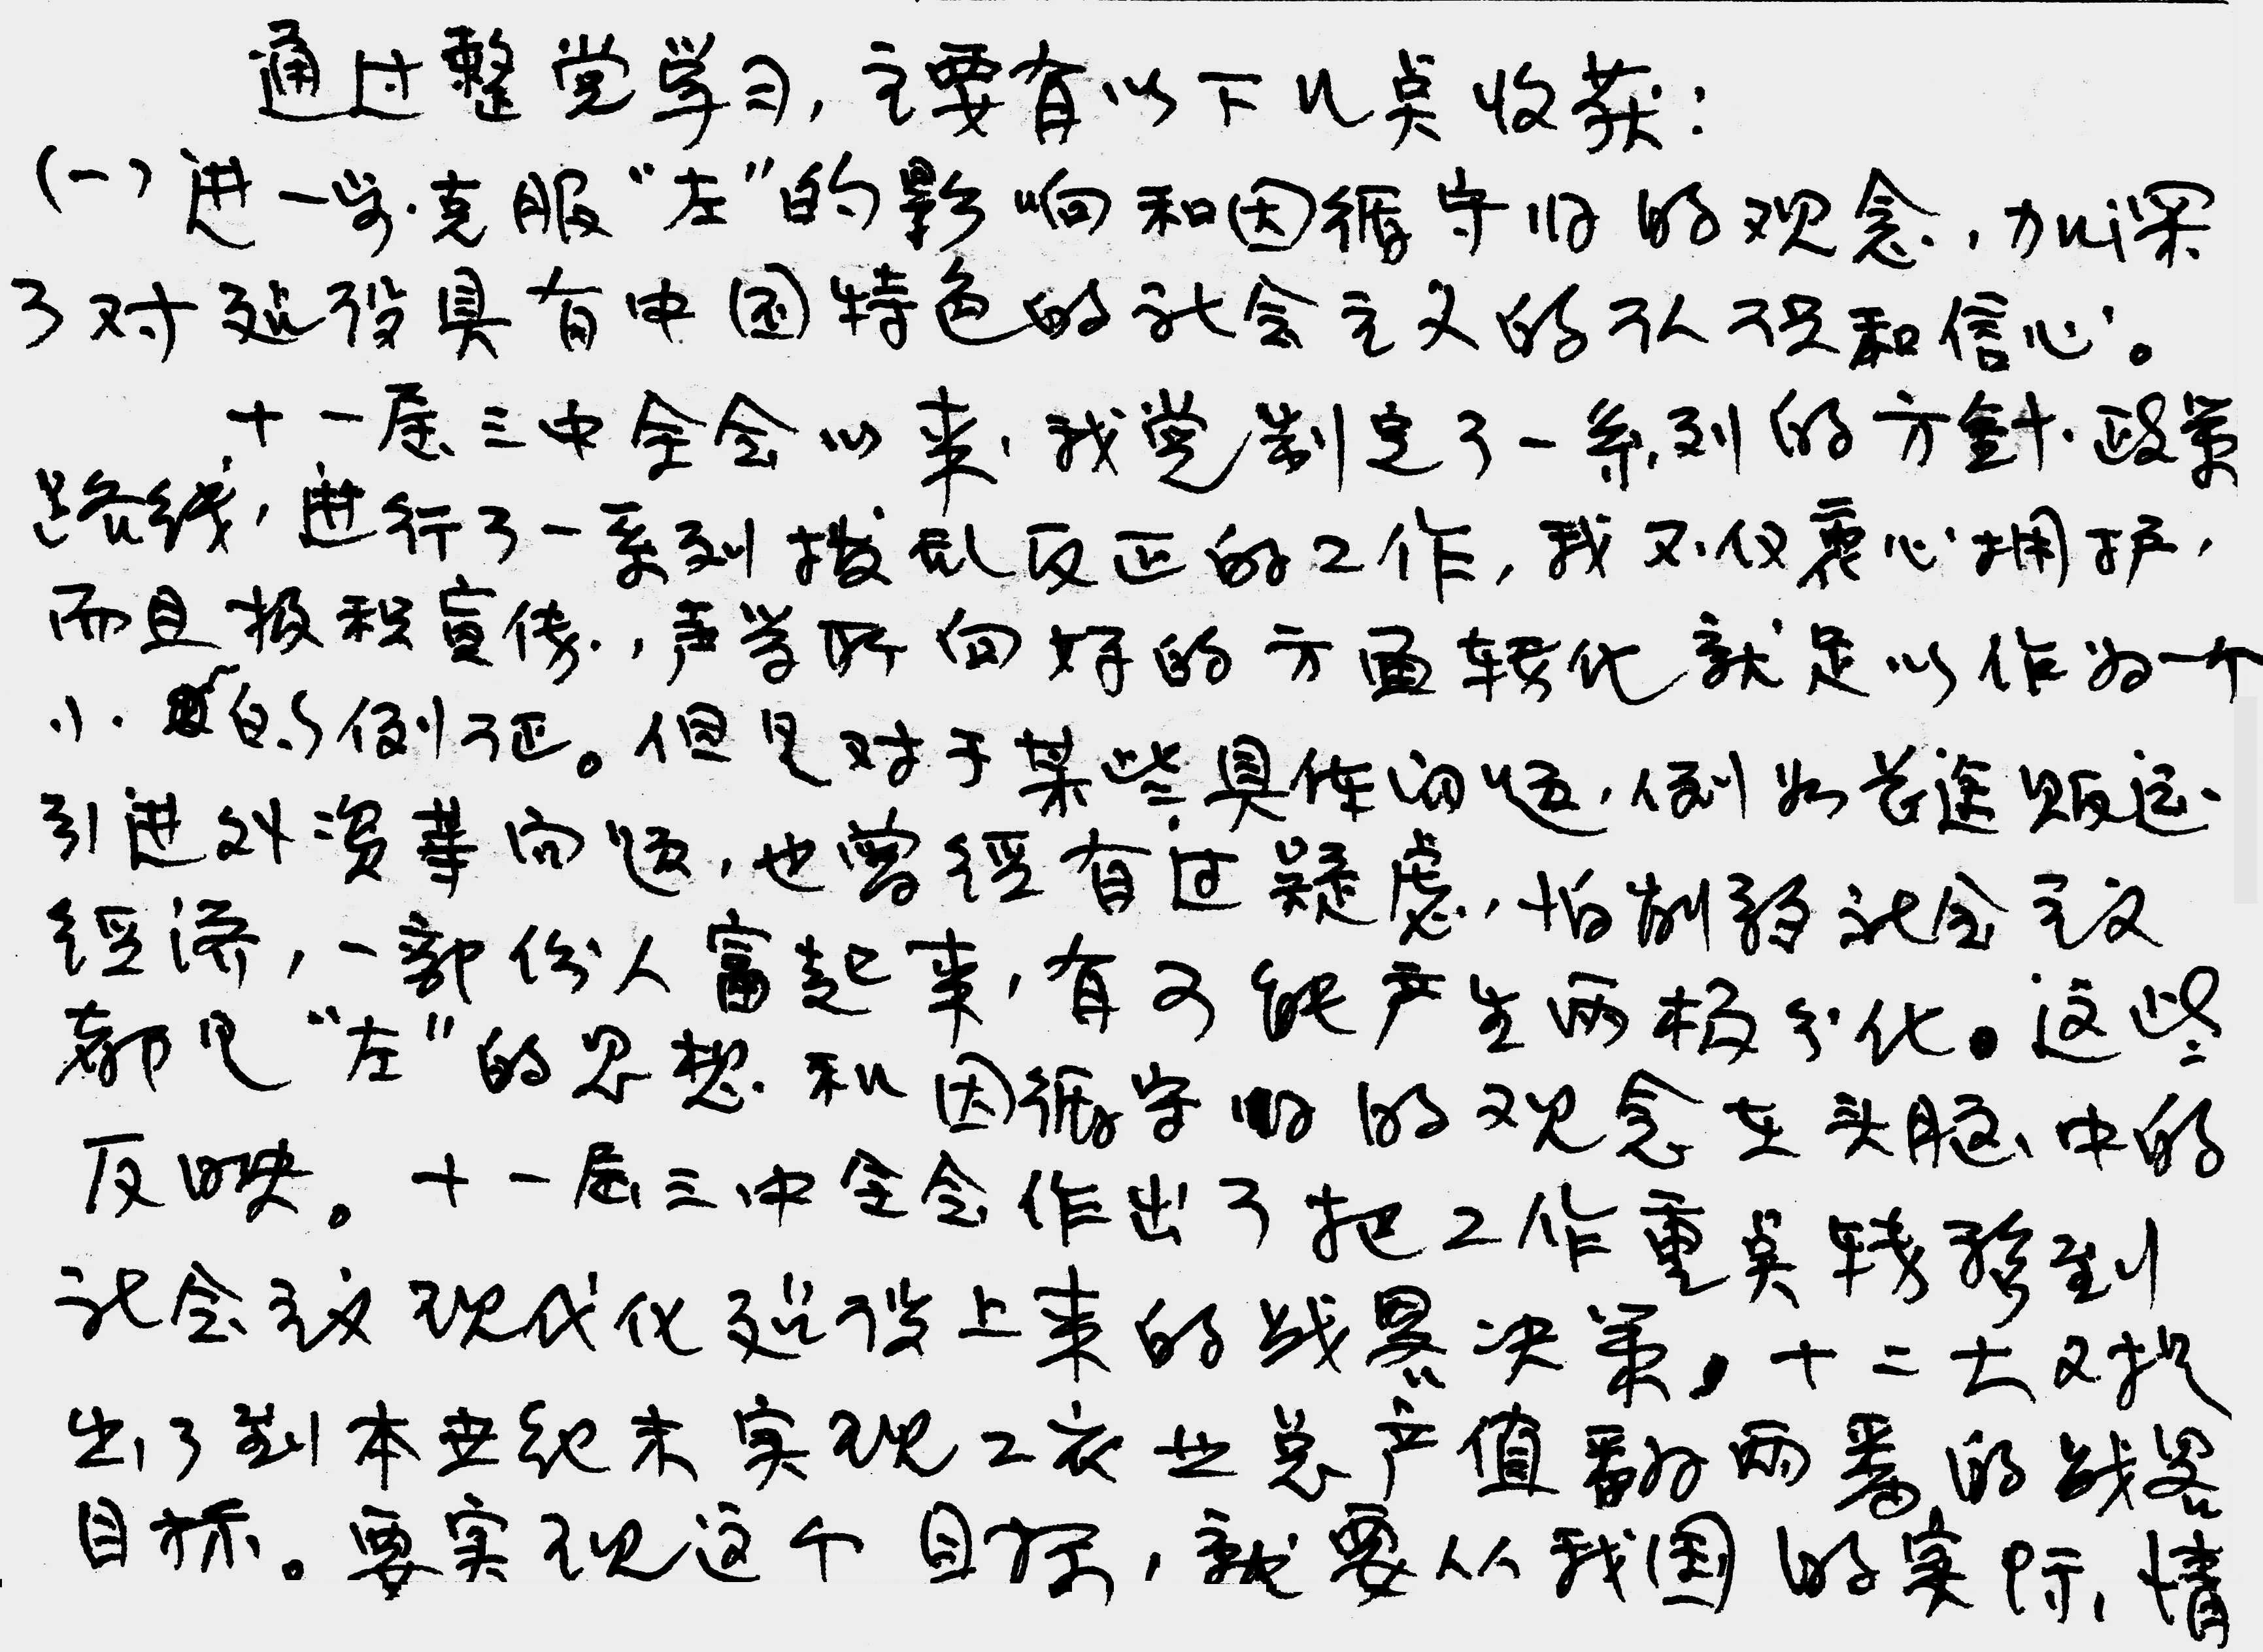 通过整党学习，主要有以下几点收获：
（一）进一步克服“左”的影响和因循守旧的观念，加深
了对建设具有中国特色的社会主义的认识和信心。
十一届三中全会以来，我党制定了一系列的方针·政策
路线，进行了一系列拨乱反正的工作，我不仅衷心拥护，
而且极积宣传，声学所向好的方面转化就足以作为一个
小的例证。但是对于某些具体问题，例如长途贩运、
引进外资等问题，也曾经有过疑虑，怕削弱社会主义
经济，一部份人富起来，有可能产生两极分化。这些
都是“左”的思想和因循守旧的观念在头脑中的
反映。十一届三中全会作出了把工作重点转移到
社会主义现代化建设上来的战略决策，十二大又提
出了到本世纪末实现工农业总产值翻两番的战略
目标。要实现这个目标，就要从我国的实际情